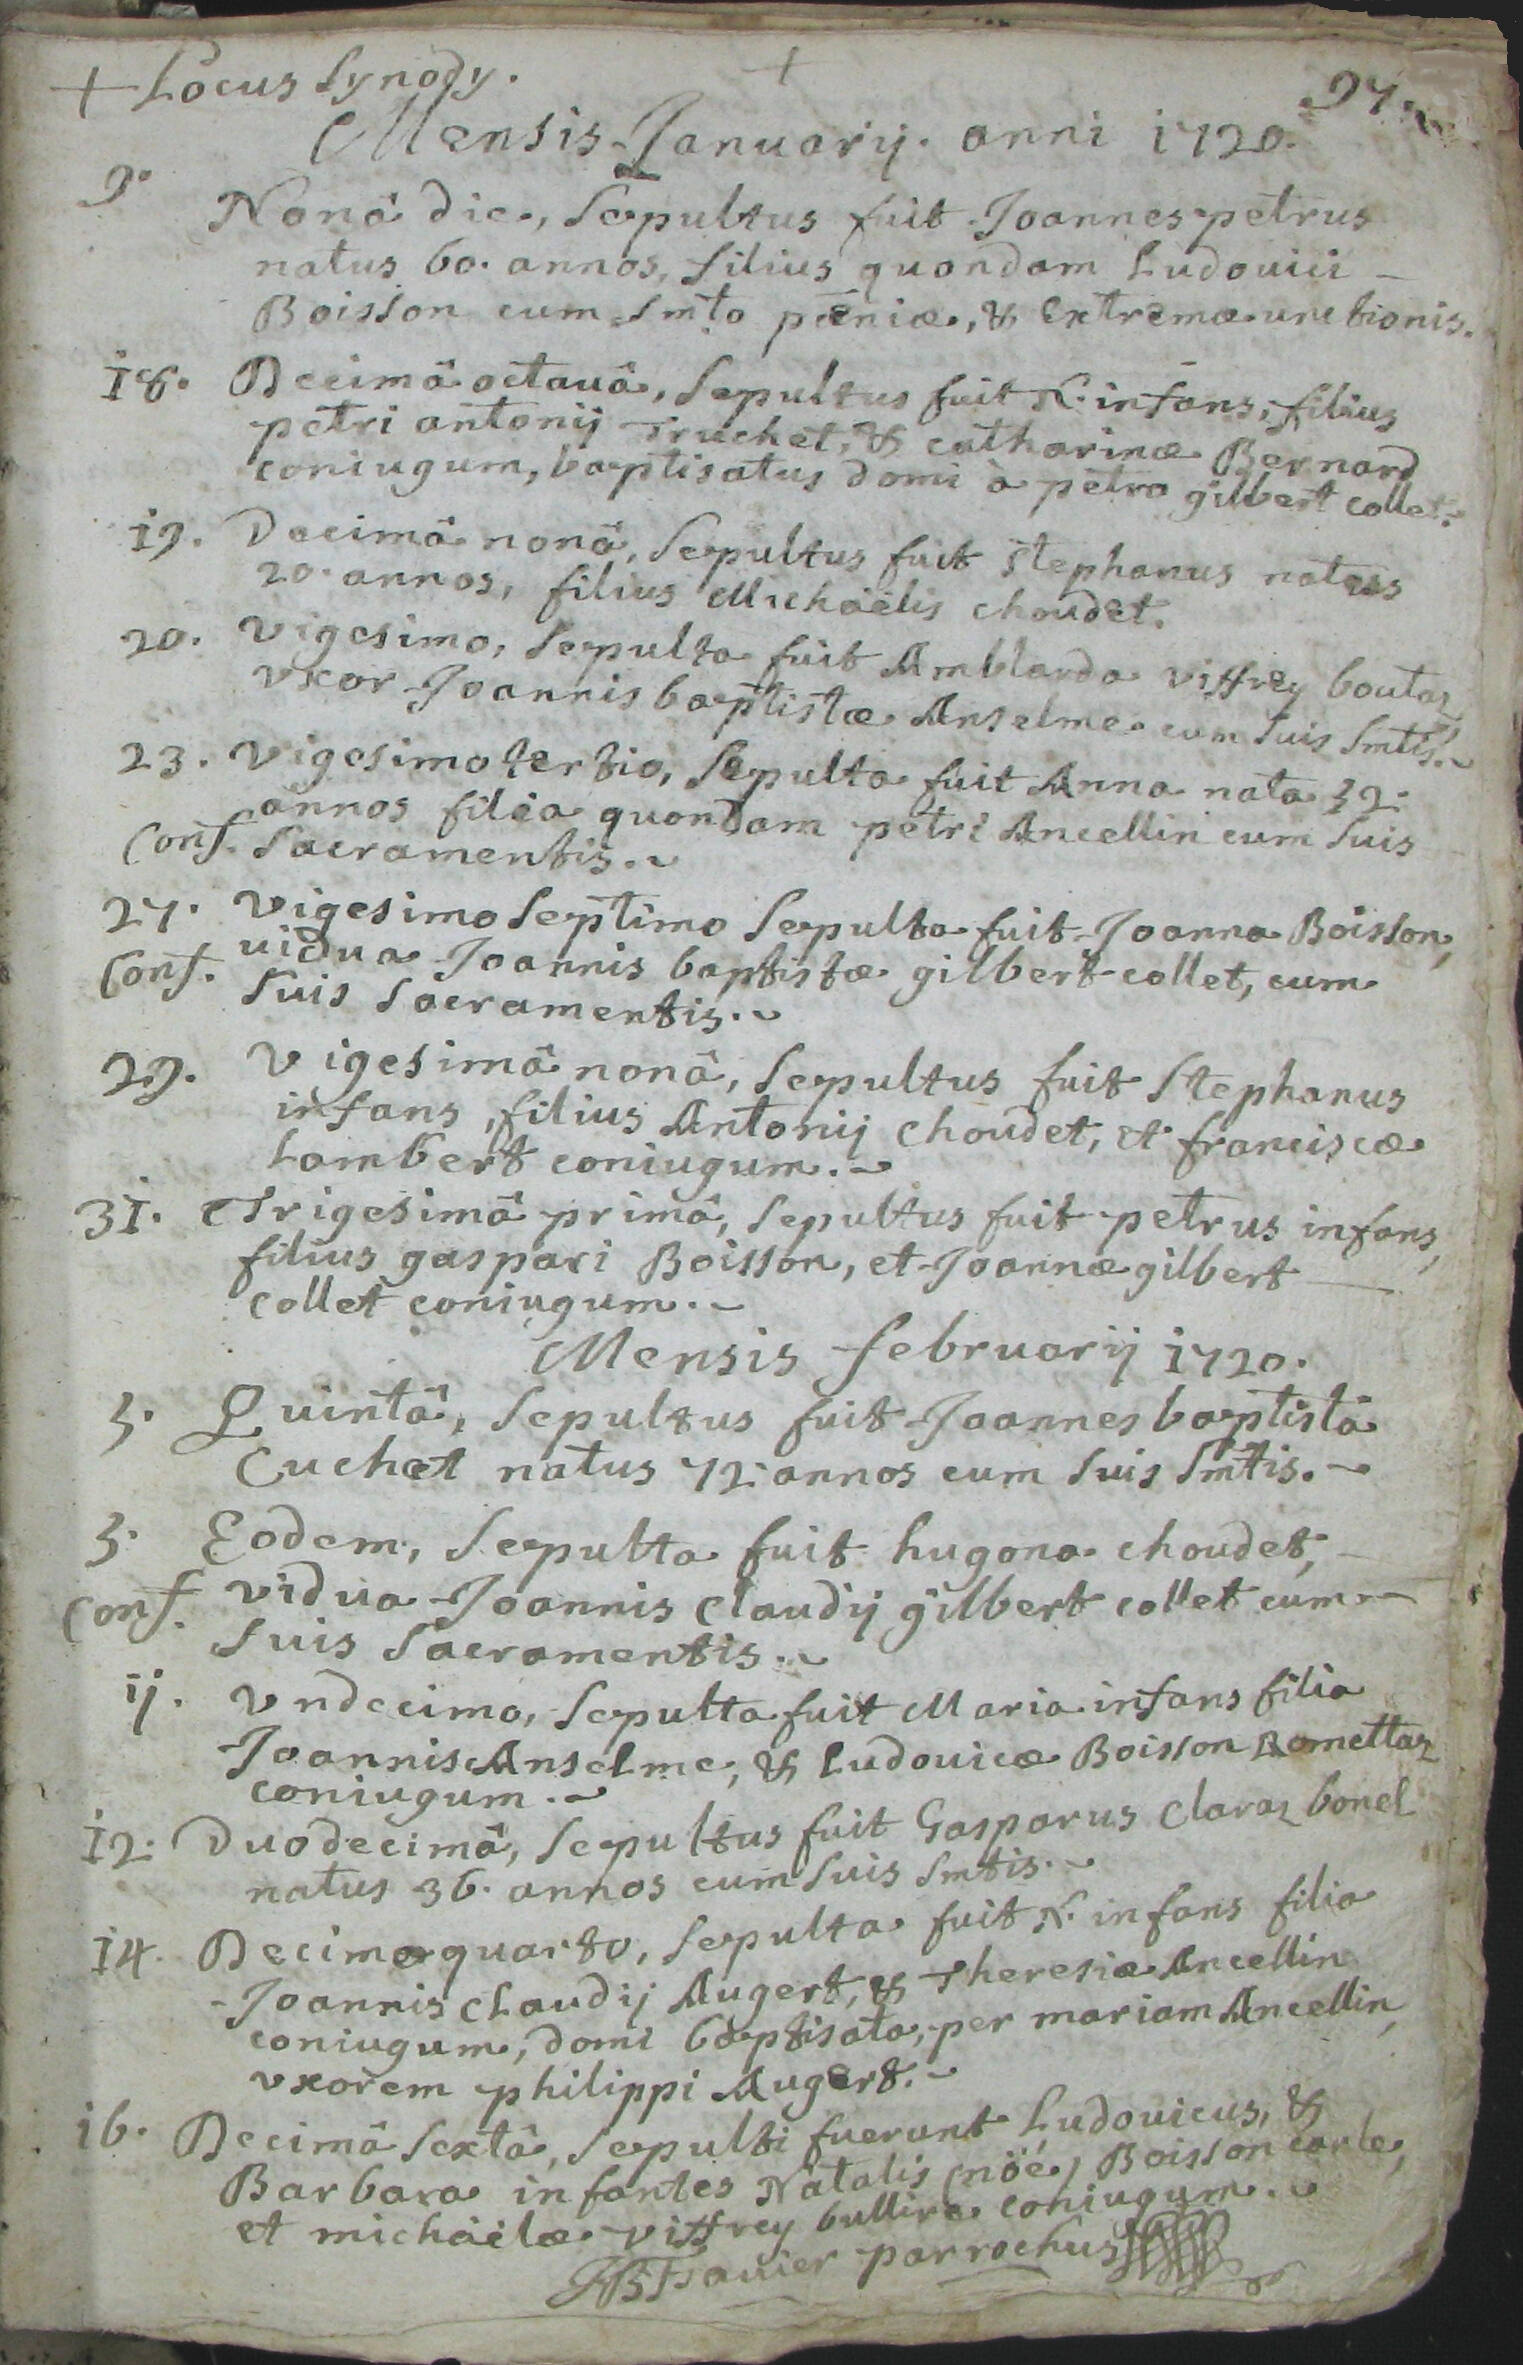 + Locus Synody. +
97.
Mensis Januarij. anni 1720.
9. Nonâ die, Sepultus fuit Joannes petrus
natus 60. annos, filius quondam Ludouici –
Boisson cum Smto pœniæ, & Extremæ unctionis.
18. Decimâ octauâ, Sepultus fuit N. infans, filius
petri antonij Truchet, & catharinæ Bernard
coniugum, baptisatus domi à petro gilbert collet.
19. Decimâ nonâ, Sepultus fuit Stephanus natus
20. annos, filius Michäelis choudet.
20. Vigesimo, Sepulta fuit Amblarda Viffrey boutaz
Vxor Joannis baptistæ Anselme cum Suis Smtis.
23. Vigesimo tertio, Sepulta fuit Anna nata 32.
annos filia quondam petri Ancellin cum Suis
Conf. Sacramentis.
27. Vigesimo Septimo Sepulta fuit Joanna Boisson,
uidua Joannis baptistæ gilbert collet, cum
Conf. Suis Sacramentis.
29. Vigesimâ nonâ, Sepultus fuit Stephanus
infans, filius Antonij choudet, et franciscæ
Lambert coniugum.
31. Trigesimâ primâ, Sepultus fuit petrus infans,
filius gaspari Boisson, et Joannæ gilbert
collet coniugum.
Mensis februarij 1720.
5. Quintâ, Sepultus fuit Joannes baptista
Cuchet natus 72. annos cum Suis Smtis.
5. Eodem, Sepulta fuit hugona choudet,
Conf. vidua Joannis Claudij gilbert collet cum
Suis Sacramentis.
ij. Vndecimo, Sepulta fuit Maria infans filia
Joannis Anselme, & Ludouicæ Boisson Romettaz
coniugum.
12. Duodecimâ, Sepultus fuit Gasparus Claraz bonel
natus 36. annos cum Suis Smtis.
14. Decimo quarto, Sepulta fuit N. infans filia
Joannis Claudij Augert, & Theresiæ Ancellin
coniugum, domi baptisata, per mariam Ancellin,
vxorem philippi Augert.
16. Decimâ Sextâ, Sepulti fuerunt Ludouicus, &
Barbara infantes Natalis (nöé) Boisson carle,
et michäelæ Viffrey bullire coniugum.
JB Fauier parrochus